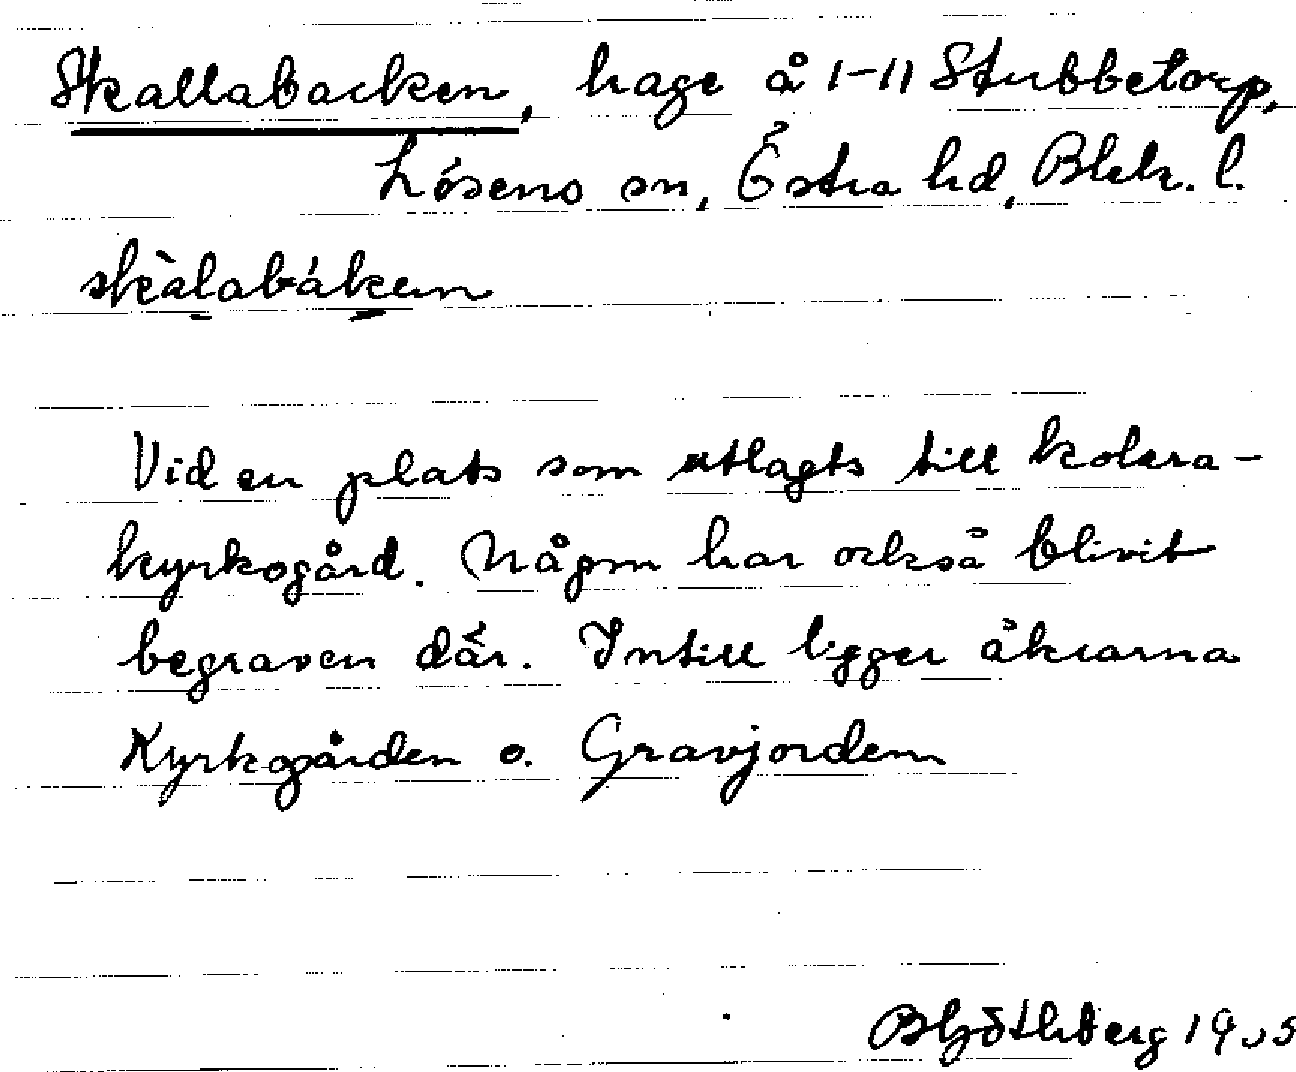 Skallabacken, hage å 1-11 Stubbetorp,
Lösens sn, Östra hd, Blek. l.
skàlabáken
Vid en plats som utlagts till kolera-
kyrkogård. Någon har också blivit
begraven där. Intill ligger åkrarna
Kyrkogården o. Gravjorden